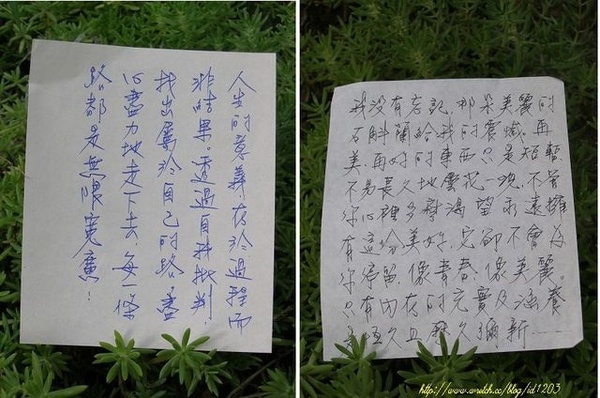 人生的意義,在於過程而
非結果。透過自我批判,
找出屬於自己的路,盡
心盡力地走下去,每一條
路都是無限寬廣!
我沒有忘記,那朵美麗的
石斛蘭給我的震憾。再
美、再好的東西只是短暫、
不易長久地曇花一現,不管
你心裡多麼渴望永遠擁
有這份美好,它卻不會為
你停留,像青春、像美麗。
只有內在的充實及涵養
是恆久且歷久彌新……
http://www.wretch.cc/blog/id1203